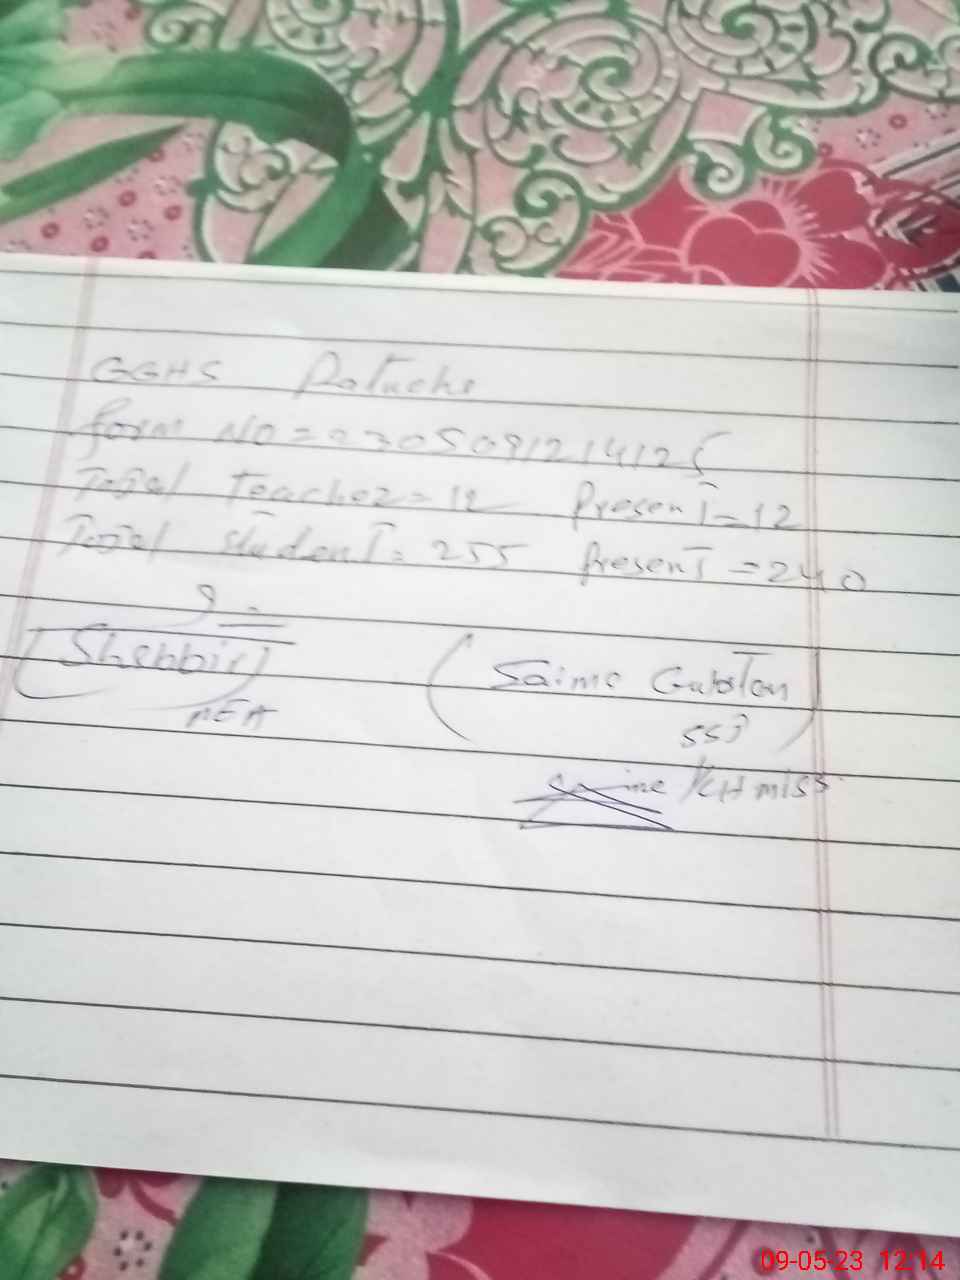 GGHS Patuche
form NO = 230509121412 5
Total Teacher = 12 Present = 12
Total student = 255 Present = 240
(Shabbir) (Saima Gulstan)
MEA SST
KH miss
09-05-23 12:14